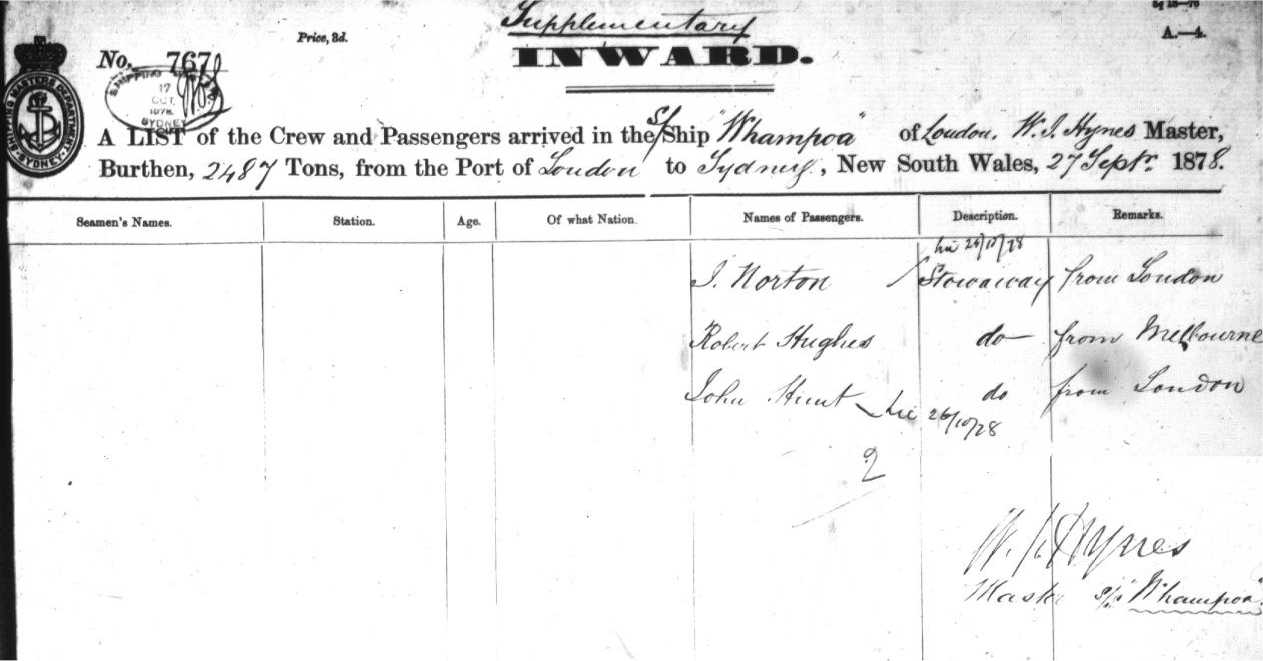 Supplementary
Price, 3d.
A.—4.
No. 767
INWARD.
SHIPPING MASTERS DEPARTMENT SYDNEY
SHIPPING
17
OCT.
1878
SYDNEY
A LIST of the Crew and Passengers arrived in the S/Ship "Whampoa" of London, W. J. Hynes Master,
Burthen, 2487 Tons, from the Port of London to Sydney, New South Wales, 27 Septr. 1878.
Seamen's Names. Station. Age. Of what Nation. Names of Passengers. Description. Remarks.
26/10/78
J. Norton / Stowaway from London
Robert Hughes do from Melbourne
John Hunt do from London
26/10/78
2
W. J. Hynes
Master S/S "Whampoa"